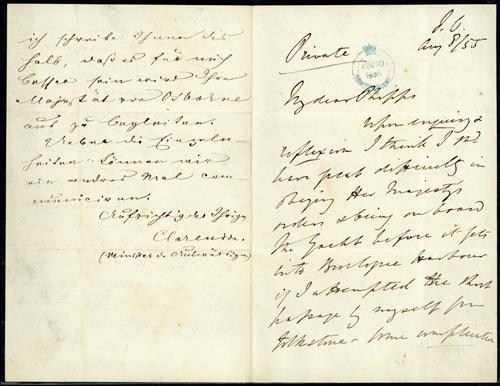 ich schreibe Ihnen des
halb, daß es für mich
besser sein wird Ihre
Majestät von Osborne
aus zu begleiten.
Ueber die Einzeln-
heiten können wir
ein andres Mal com-
municiren.
Aufrichtig der Ihrige
Clarendon.
(Minister d. Auswärtigen)
Private
Aug 8/55
AUG 10
1855
My dear Phipps
Upon enquiry &
reflexion I think I shd
have great difficulty in
obeying Her Majesty's
orders & being on board
the Yacht before it gets
into Boulogne Harbour
if I attempted the short
passage by myself from
Folkstone - some